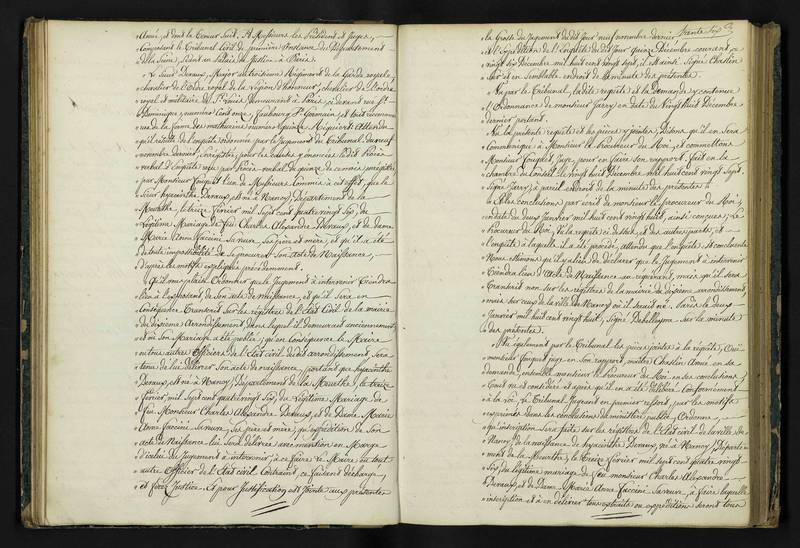 Amé, et dont la teneur suit. A Messieurs les Président et Juges,
Composant le Tribunal Civil de première Instance du Département
de la Seine, Séant au Palais de Justice à Paris.
Le Sieur Deraux, Major au troisième Régiment de la Garde royale,
chevalier de l'Ordre royal de la Légion d'honneur, chevalier de l'ordre
royal et militaire de St Louis, demeurant à Paris, ci devant rue St
Dominique, numéro Cent onze, Faubourg St Germain, et tout récemment
rue de la ferme des mathurins numéro quinze. Requiert Attendu
qu'il résulte de l'enquête ordonnée par le Jugement du Tribunal du neuf
novembre dernier, enregistré, pour les causes y énoncées, ledit Procès
verbal d'Enquête reçu par Procès-verbal du quinze de ce mois, enregistré,
par Monsieur Fouquet l'un de Messieurs Commis à cet effet, que le
Sieur hyacinthe Deraux, est né à Nancy, Département de la
Meurthe, le treize février mil sept cent quatre vingt six, du
Légitime Mariage de feu Charles Alexandre Deraux, et de dame
Marie Anne Faccini Saveur, ses père et mère, et qu'il a été
de toute impossibilité de se procurer son acte de Naissance,
d'après les motifs expliqués précédemment.
Qu'il vous plaise Ordonner que le Jugement à intervenir tiendra
lieu à l'exposant de son acte de naissance, et qu'il sera en
Conséquence transcrit sur les registres de l'Etat Civil de la mairie
du dixième Arrondissement, dans lequel il demeurait anciennement
et où son Mariage a été publié; qu'en Conséquence le Maire
ou tous autres Officiers de l'Etat civil dudit arrondissement sera
tenu de lui délivrer son acte de naissance, portant que hyacinthe
Deraux, est né à Nancy, Département de la Meurthe le treize
février, mil sept cent quatre vingt six, du Légitime Mariage de
feu Monsieur Charles Alexandre Deraux, et de Dame Marie
Anne Faccini Saveur, ses père et mère; qu'expédition de son
acte de Naissance lui sera délivrée avec mention en Marge
d'icelui du jugement à intervenir; à ce faire le Maire ou tout
autre Officier de l'Etat civil Contraint, ce faisant déchargé,
et ferez Justice. Et pour Justification est Jointe aux présentes
trente Six
la Grosse du Jugement dudit Jour neuf novembre dernier
et l'Expédition de l'Enquête dudit Jour quinze Décembre courant, ce
vingt six Décembre mil huit cent vingt sept, ainsi signé Chastin
Sur et en semblable endroit de la minute des présentes.
Vu par le Tribunal, ladite requête et la Demande y contenue
l'Ordonnance de monsieur Jarry en date du Vingt huit Décembre
dernier portant.
Vu la présente requête et les pièces y jointes, Disons qu'il en sera
Communiqué à Monsieur le procureur du Roi, et commettons
Monsieur Fouquet, Juge, pour en faire son rapport. Fait en la
chambre du Conseil le vingt huit Décembre mil huit cent vingt sept.
Signé Jarry; à pareil endroit de la minute des présentes
Les Conclusions par écrit de monsieur le procureur du Roi,
en date du deux Janvier mil huit cent vingt huit, ainsi conçues; Le
procureur du Roi, Vu la requête ci dessus, et des autres parts, et
l'enquête à laquelle il a été procédé, attendu que l'enquête est concluante
Nous estimons qu'il y a lieu de déclarer que le Jugement à intervenir
tiendra lieu d'acte de Naissance au requérant, mais qu'il sera
transcrit non sur les registres de la mairie du dixième arrondissement,
mais sur ceux de la ville de Nancy où il serait né. Paris le deux
Janvier mil huit cent vingt huit, Signé Debelleyme sur la minute
des présentes.
Vu également par le Tribunal les pièces jointes à la requête, Ouï
monsieur Fouquet juge en son rapport, maître Chastin Amé en sa
demande, ensemble monsieur le procureur du Roi en ses conclusions,
tout vu et considéré et après qu'il en a été délibéré Conformément
à la Loi. Le Tribunal Jugeant en premier ressort, par les motifs
exprimés dans les conclusions du ministère public, Ordonne
qu'inscription sera faite sur les registres de l'Etat civil de la ville de
Nancy, de la naissance de hyacinthe Deraux, né à Nancy, Départe-
ment de la Meurthe, le treize février mil sept cent quatre vingt
six, du légitime mariage de feu monsieur Charles Alexandre
Deraux, et de Dame Marie Anne Faccini Saveur, à faire laquelle
inscription et à en délivrer tous extraits ou expéditions seront tous